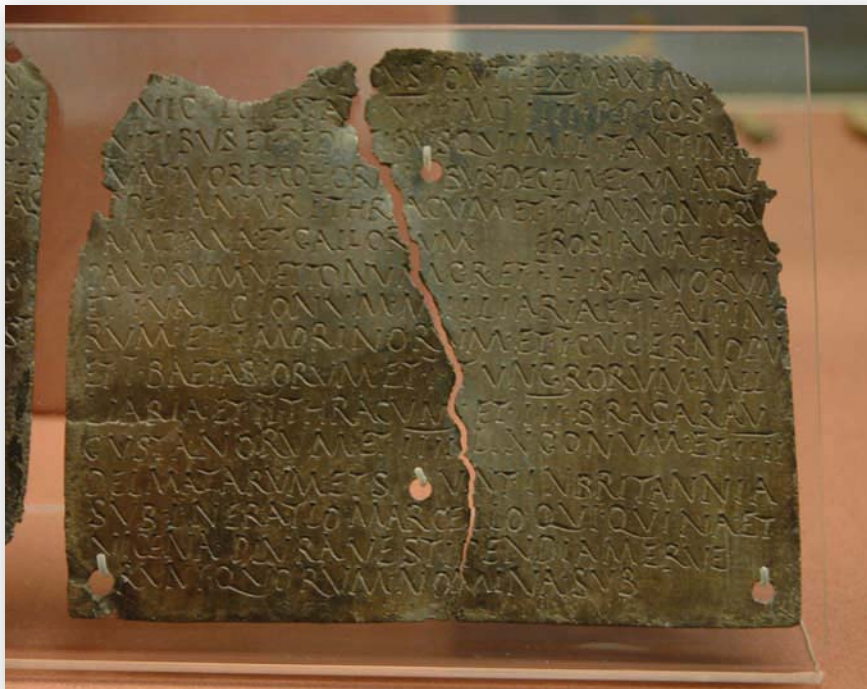 CVS PONTIFEX MAXIMV
NIC POTESTA VII IMP IIII P P COS
VITIBVS ET PEDITIBVS QVI MILITANT IN A
VATTVOR ET COHORTIBVS DECEM ET VNA QVA
PELLANTVR I THRACVM ET I PANNONIORV
TAMPIANA ET GALLORVM EBOSIANA ET HIS
PANORVM VETTONVM C R ET I HISPANORVM
ET I VA CIONVM MILLIARIA ET I ALPINO
RVM ET I MORINORVM ET I CVGERNORV
ET I BAETASIORVM ET I TVNGRORVM MIL
LIARIA ET II THRACVM ET III BRACARAV
GVSTANORVM ET III LINGONVM ET IIII
DELMATARVM ET SVNT IN BRITANNIA
SVB L NERATIO MARCELLO QVI QVINA ET
VICENA PLVRAVE STIPENDIA MERVE
RVNT QVORVM NOMINA SVB